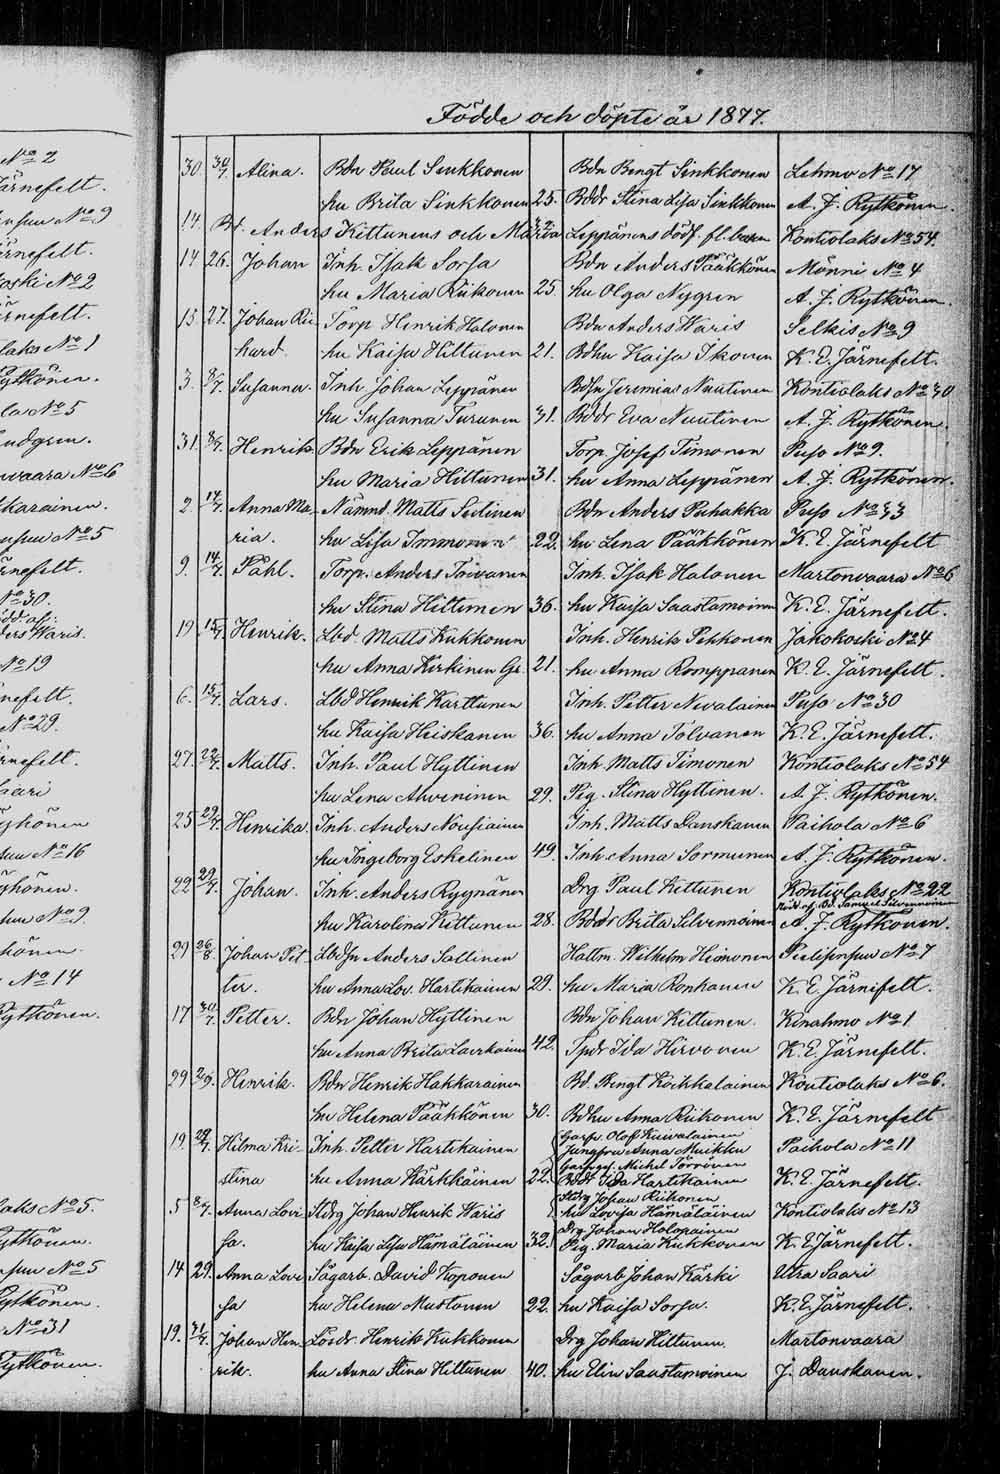 Födde och döpte år 1877.
30. 30/7. Alina. Bdn Paul Sinkkonen Bdn Bengt Sinkkonen Lehmo No 17
hu Brita Sinkkonen 25. Bddr Stina Lisa Sinkkonen A. J. Rytkönen.
14. Bd. Anders Kettunens och Maria Leppänens dödf. fl. barn Kontiolaks No 54.
14 26. Johan Inh. Isak Sorsa Bdn Anders Pääkkönen Mönni No 4
hu Maria Riikonen 25. hu Olga Nygren A. J. Rytkönen.
15. 27. Johan Ric- Torp Henrik Halonen Bdn Anders Waris Selkis No 9
hard. hu Kaisa Hiltunen 21. Bdhu Kaisa Ikonen K. E. Järnefelt.
3. 8/7. Susanna. Inh. Johan Leppänen Bdsn Jeremias Nuutinen Kontiolaks No 30
hu Susanna Turunen 31. Bddr Eva Nuutinen A. J. Rytkönen.
31. 8/7. Henrik. Bdn Erik Leppänen Torp. Josef Timonen Puso No 9.
hu Maria Hiltunen 31. hu Anna Leppänen A. J. Rytkönen.
2. 14/7. Anna Ma- Nämnd. Matts Sutinen Bdn Anders Puhakka Puso No 33
ria. hu Lisa Immonen 22. hu Lena Pääkkönen K. E. Järnefelt
9. 14/7. Påhl. Torp. Anders Toivanen Inh. Isak Halonen Martonvaara No 6
hu Stina Hiltunen 36. hu Kaisa Saastamoinen K. E. Järnefelt.
19 15/7. Henrik. Lbd. Matts Kukkonen Inh. Henrik Pehkonen Jakokoski No 4
hu Anna Kirkinen Gr. 21. hu Anna Romppanen K. E. Järnefelt.
6. 15/7. Lars. Lbd Henrik Karttunen Inh. Petter Nevalainen Puso No 30
hu Kaisa Heiskanen 36. hu Anna Tolvanen K. E. Järnefelt.
27. 22/7. Matts. Inh. Paul Hyttinen Inh. Matts Timonen Kontiolaks No 54
hu Lena Ahveninen 29. Pig. Stina Hyttinen. A. J. Rytkönen.
25 29/7. Henrika. Inh. Anders Nousiainen Inh. Matts Danskanen Paihola No 6
hu Ingeborg Eskelinen 49. Inh. Anna Sormunen A. J. Rytkönen.
22 29/7. Johan. Inh. Anders Ryynänen Drg Paul Kettunen Kontiolaks No 22
hu Karolina Kettunen 28. Bddr Brita Silvennoinen A. J. Rytkönen.
29 26/8. Johan Pet- Lbdsn Anders Sallinen Hattm. Wilhelm Heimonen No 7
ter. hu Anna Lov. Hartikainen 29. hu Maria Ronkanen K. E. Järnefelt.
17 30/7. Petter. Bdn Johan Hyttinen Bdn Johan Kettunen. Kinahmo No 1
hu Anna Brita 42. Tpdr Ida Hirvonen K. E. Järnefelt.
29 2/9. Henrik. Bdn Henrik Hakkarainen Bd. Bengt Koikkalainen Kontiolaks No 6.
hu Helena Pääkkönen 30. Bdhu Anna Riikonen K. E. Järnefelt
19. 29/7. Hilma Kri- Inh. Petter Hartikainen Garfv. Olof Kuivalainen Jungfru Anna Muikku Paihola No 11
stina hu Anna Kärkkäinen 22. Garfvges. Michel Törrönen Bddr Ida Hartikainen K. E. Järnefelt.
5 8/7. Anna Lovi- Stdrg Johan Henrik Waris Stdrg Johan Riikonen hu Lovisa Hämäläinen Kontiolaks No 13
sa. hu Kaisa Lisa Hämäläinen 32. Drg. Johan Holopainen Pig. Maria Kukkonen K. E. Järnefelt.
14 29. Anna Lovi- Sågarb. David Koponen Sågarb Johan Kärki Utra Saari
sa hu Helena Mustonen 22. hu Kaisa Sorsa. K. E. Järnefelt.
19. 31/7. Johan Hen- Henrik Kukkonen Drg Johan Hiltunen. Martonvaara
rik. hu Anna Stina Hiltunen 40. hu Elin Saastamoinen J. Danskanen.